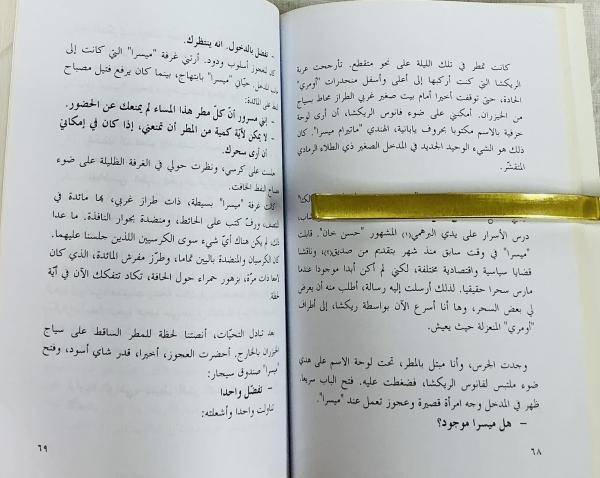 كانت تمطر في تلك الليلة على نحو متقطع. تأرجحت عربة
الريكشا التي كنت أركبها إلى أعلى وأسفل منحدرات "أومري"
الحادة، حتى توقفت أخيرا أمام بيت صغير غربي الطراز محاط بسياج
من الخيزران. أمكنني على ضوء فانوس الريكشا، أن أرى لوحة
حرفية بالاسم مكتوبا بحروف يابانية، الهندي "ماتيرام ميسرا". كان
ذلك هو الشيء الوحيد الجديد في المدخل الصغير ذي الطلاء الرمادي
المتقشّر.
درس الأسرار على يدي البرهمي(١) المشهور "حسن خان". قابلت
"ميسرا" في وقت سابق منذ شهر بتقديم من صديق(٢)، وناقشنا
قضايا سياسية واقتصادية مختلفة، لكني لم أكن أبدا موجودا عندما
مارس سحرا حقيقيا. لذلك أرسلت إليه رسالة، أطلب منه أن يعرض
لي بعض السحر، وها أنا أسرع الآن بواسطة ريكشا، إلى أطراف
"أومري" المنعزلة حيث يعيش.
وجدت الجرس، وأنا مبتل بالمطر، تحت لوحة الاسم على هدي
ضوء ملتبس لفانوس الريكشا، فضغطت عليه. فتح الباب سريعا.
ظهر في المدخل وجه امرأة قصيرة وعجوز تعمل عند "ميسرا".
– هل ميسرا موجود؟
٦٨
– تفضل بالدخول. انه ينتظرك.
للعجوز أسلوب ودود. أرتني غرفة "ميسرا" التي كانت إلى
المدخل. حيّاني "ميسرا" بابتهاج، بينما كان يرفع فتيل مصباح
على المائدة:
– إنني مسرور أنّ كلّ مطر هذا المساء لم يمنعك عن الحضور.
– لا يمكن لأيّة كمية من المطر أن تمنعني، إذا كان في إمكانيَ
أن أرى سحرك.
جلست على كرسي، ونظرت حولي في الغرفة الظليلة على ضوء
مصباح النفط الخافت.
كانت غرفة "ميسرا" بسيطة، ذات طراز غربي، بها مائدة في
المنتصف، ورفّ كتب على الحائط، ومنضدة بجوار النافذة. ما عدا
ذلك لم يكن هناك أيّ شيء سوى الكرسيين اللذين جلسنا عليهما.
كان الكرسيان والمنضدة باليين تماما، وطرّز مفرش المائدة، الذي كان
مرّة، بزهور حمراء حول الحافة، تكاد تتفكك الآن في أيّة
لحظة.
بعد تبادل التحيّات، أنصتنا لحظة للمطر الساقط على سياج
الخيزران بالخارج. أحضرت العجوز، أخيرا، قدر شاي أسود، وفتح
"ميسرا" صندوق سيجار:
– تفضّل واحدا
تناولت واحدا وأشعلته:
٦٩